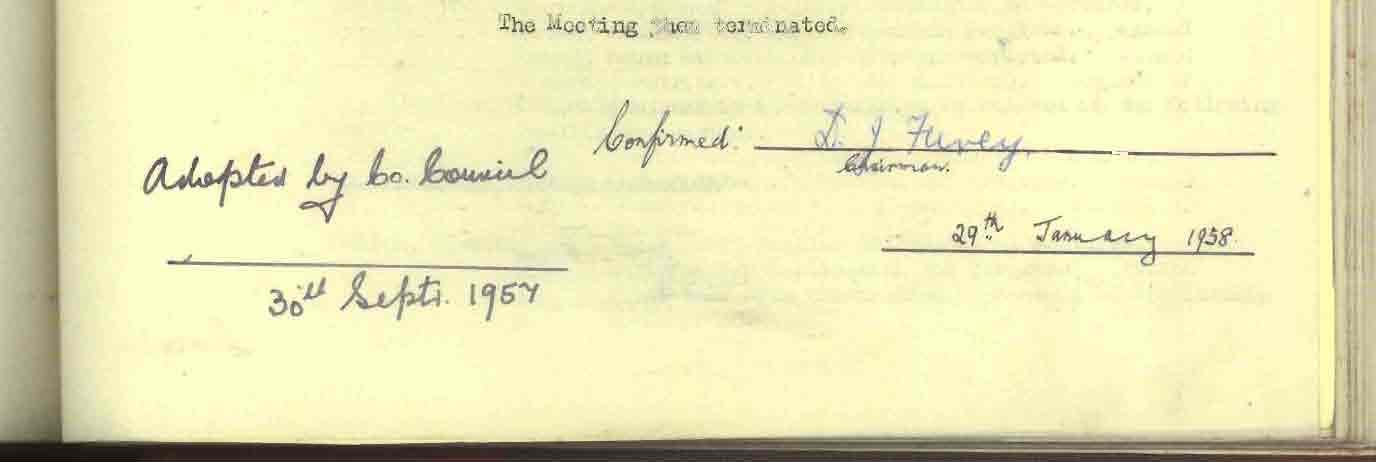 The Meeting then terminated.
Confirmed: D. J Furey.
Chairman.
Adopted by Co. Council
29th January 1958.
30th Septr. 1957